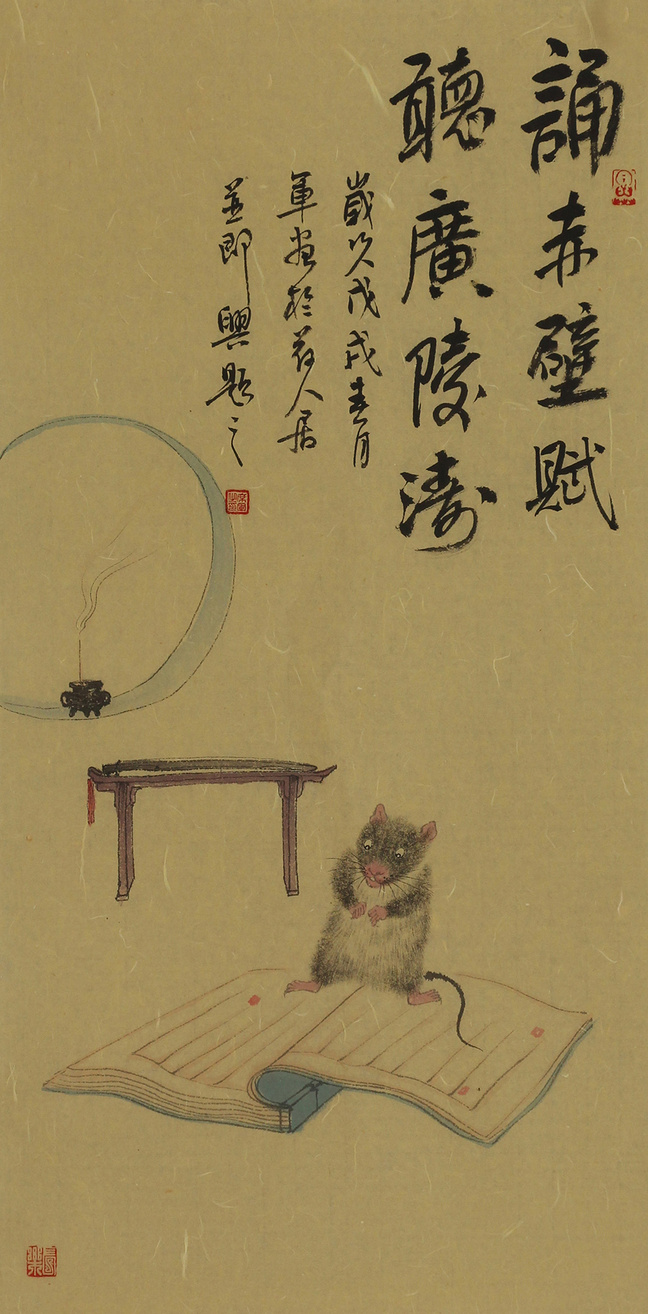 誦赤壁賦
聽廣陵濤
歲次戊戌春月
軍畫於若人居
並即興題之